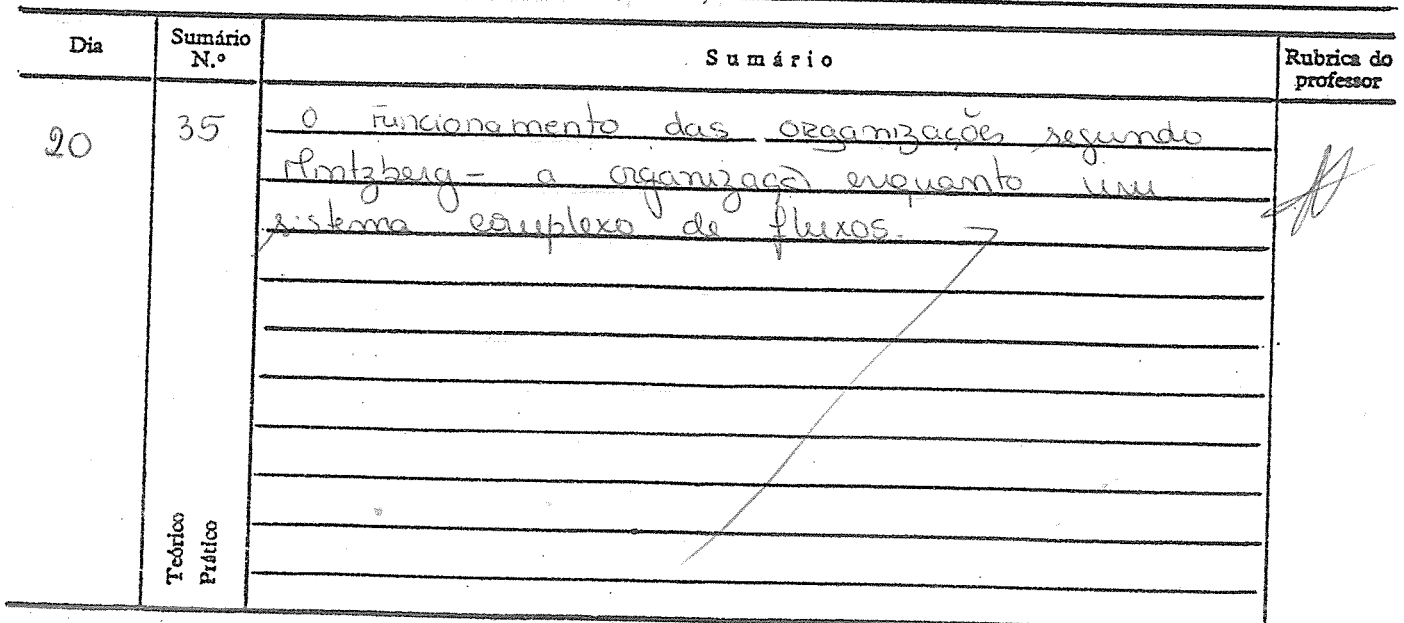 Dia
Sumário N.º
Sumário
Rubrica do professor
20
35
O Funcionamento das organizações segundo
Mintzberg - a organização enquanto um
sistema complexo de fluxos.
Teórico
Prático